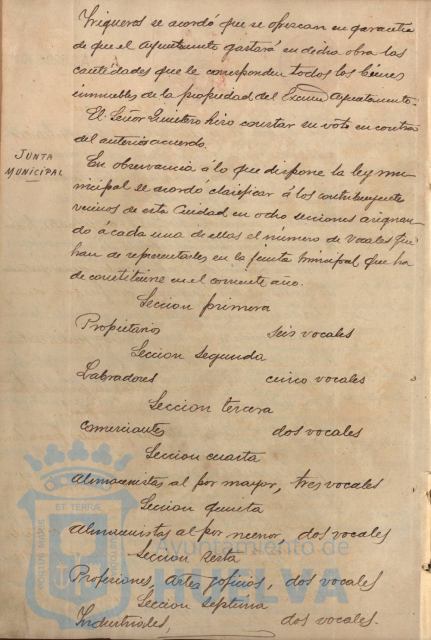 Trigueros se acordó que se ofrezcan en garantia
de que el Ayuntamento gastará en dicha obra las
cantidades que le corresponden todos los bienes
inmuebles de la propiedad del Excmo Ayuntamento.
El Señor Quintero hizo constar su voto en contra
del anterior acuerdo.
JUNTA
MUNICIPAL
En observancia á lo que dispone la ley mu-
nicipal se acordo clasificar á los contribuyentes
vecinos de esta Ciudad en ocho secciones asignan-
do á cada una de ellas el número de vocales que
han de representarles en la junta municipal que ha
de constituirse en el corriente año.
Seccion primera
Propietarios seis vocales
Seccion segunda
Labradores cinco vocales
Seccion tercera
Comerciantes dos vocales
Seccion cuarta
Almacenistas al por mayor, tres vocales
Seccion quinta
Almacenistas al por menor, dos vocales
Seccion sexta
Profesiones, artes y oficios, dos vocales
Seccion septima
Industriales, dos vocales.
Ayuntamiento de
HUELVA